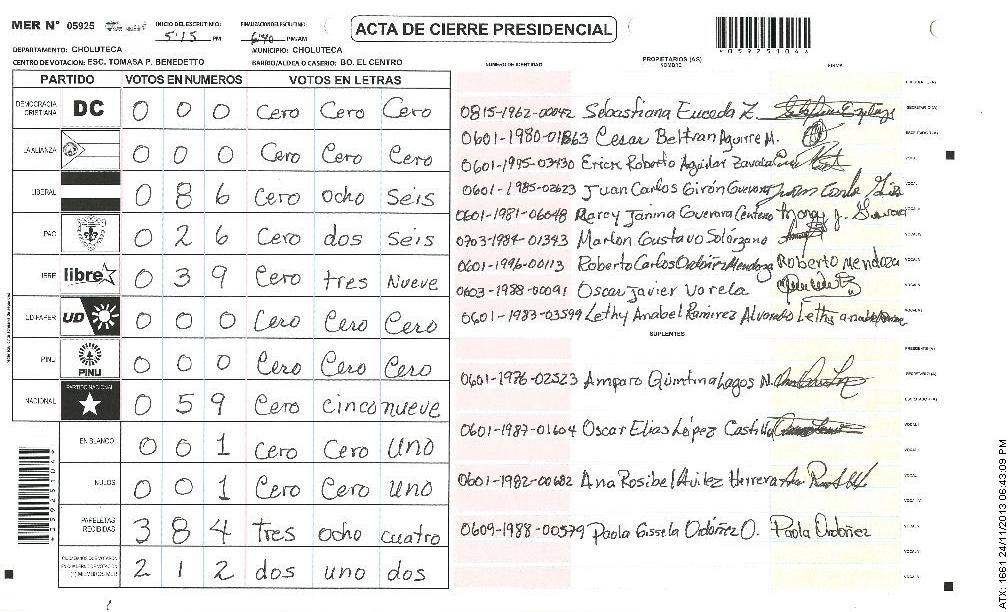 MER N° 05925 INICIO DEL ESCRUTINIO: 5:15 PM FINALIZACION DEL ESCRUTINIO: 6:40 PM/AM ACTA DE CIERRE PRESIDENCIAL
DEPARTAMENTO: CHOLUTECA MUNICIPIO: CHOLUTECA
CENTRO DE VOTACION: ESC. TOMASA P. BENEDETTO BARRIO/ALDEA O CASERIO: BO. EL CENTRO
NUMERO DE IDENTIDAD PROPIETARIOS (AS) NOMBRE FIRMA
PARTIDO VOTOS EN NUMEROS VOTOS EN LETRAS
DEMOCRACIA CRISTIANA DC 0 0 0 Cero Cero Cero
LA ALIANZA 0 0 0 Cero Cero Cero
LIBERAL 0 8 6 Cero ocho Seis
PAC 0 2 6 Cero dos Seis
LIBRE libre 0 3 9 Cero tres Nueve
UD-FAPER UD 0 0 0 Cero Cero Cero
PINU PINU 0 0 0 Cero Cero Cero
NACIONAL PARTIDO NACIONAL 0 5 9 Cero cinco nueve
EN BLANCO 0 0 1 Cero Cero Uno
NULOS 0 0 1 Cero Cero uno
PAPELETAS RECIBIDAS 3 8 4 tres ocho cuatro
2 1 2 dos uno dos
0815-1962-00042 Sebastiana Euceda Z.
0601-1980-01863 Cesar Beltran Aguirre M.
0601-1995-03430 Erick Roberto Aguilar Zavala
0601-1985-02623 Juan Carlos Girón Guevara
0601-1981-06048 Mercy Janina Guevara Centeno
0703-1984-01343 Marlon Gustavo Solórzano
0601-1996-00113 Roberto Carlos Ordóñez Mendoza Roberto Mendoza
0603-1988-00091 Oscar Javier Varela
0601-1983-03599 Lethy Anabel Ramirez Alvarado
SUPLENTES
0601-1976-02523 Amparo Quintina Lagos N.
0601-1987-01604 Oscar Elias López Castillo
0601-1982-00682 Ana Rosibel Avilez Herrera
0609-1988-00579 Paola Gissela Ordóñez O. Paola Ordóñez
ATX: 1661 24/11/2013 06:43:09 PM